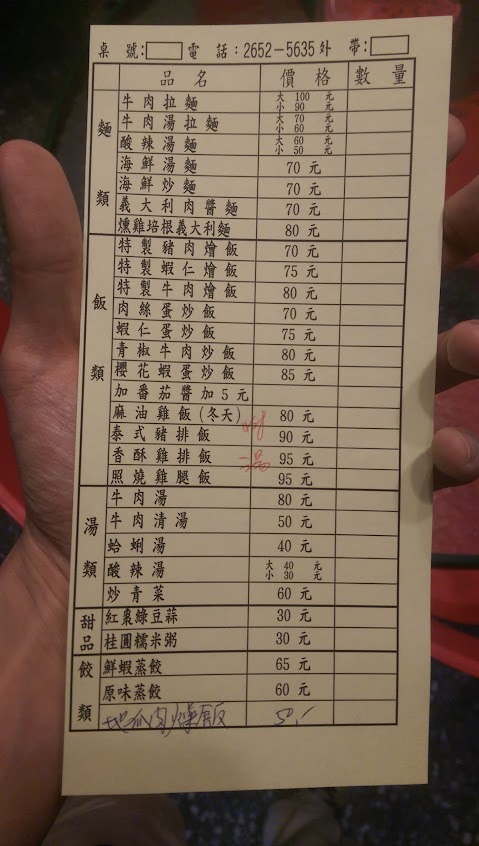 桌 號: 電 話:2652-5635 外 帶:
品 名 價 格 數 量
麵類
牛肉拉麵 大 100 元 小 90 元
牛肉湯拉麵 大 70 元 小 60 元
酸辣湯麵 大 60 元 小 50 元
海鮮湯麵 70 元
海鮮炒麵 70 元
義大利肉醬麵 70 元
燻雞培根義大利麵 80 元
飯類
特製豬肉燴飯 70 元
特製蝦仁燴飯 75 元
特製牛肉燴飯 80 元
肉絲蛋炒飯 70 元
蝦仁蛋炒飯 75 元
青椒牛肉炒飯 80 元
櫻花蝦蛋炒飯 85 元
加番茄醬加5元
麻油雞飯(冬天) 80 元
泰式豬排飯 90 元
香酥雞排飯 95 元
照燒雞腿飯 95 元
附湯
湯類
牛肉湯 80 元
牛肉清湯 50 元
蛤蜊湯 40 元
酸辣湯 大 40 元 小 30 元
炒青菜 60 元
甜品
紅棗綠豆蒜 30 元
桂圓糯米粥 30 元
餃類
鮮蝦蒸餃 65 元
原味蒸餃 60 元
地瓜肉燥飯 50.-